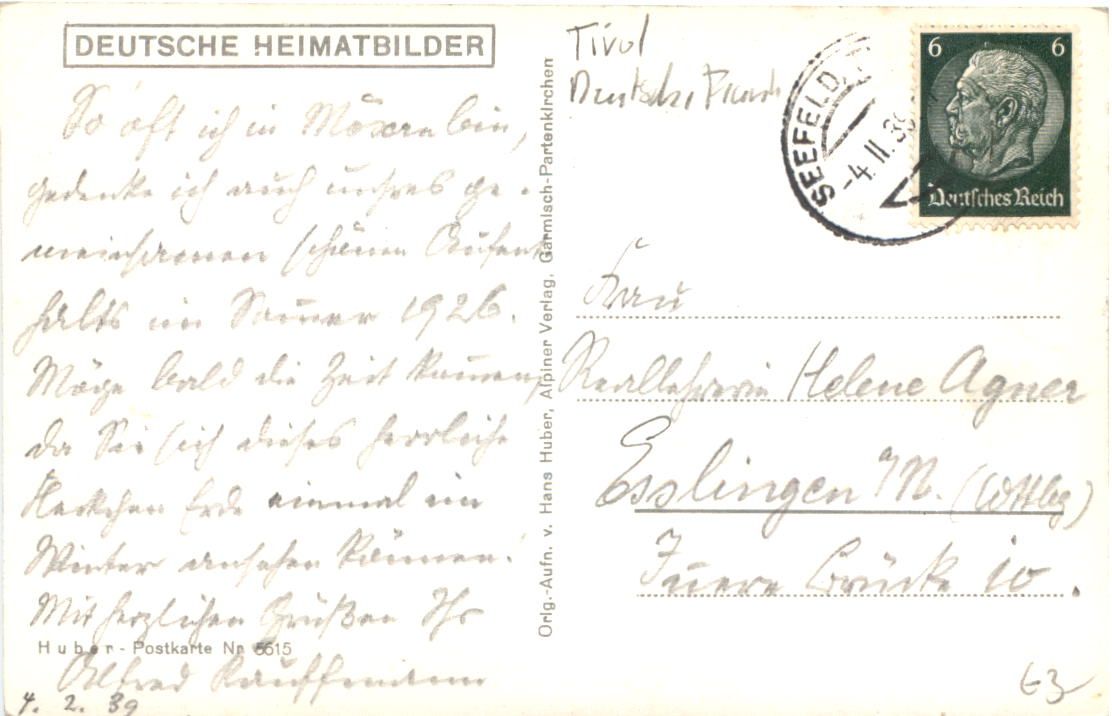 DEUTSCHE HEIMATBILDER
So oft ich in Mösern bin,
gedenke ich auch unsres ge-
meinsamen schönen Aufent-
halts im Sommer 1926.
Möge bald die Zeit kommen,
da Sie sich dieses herrliche
Fleckchen Erde einmal im
Winter ansehen können.
Mit herzlichen Grüßen Ihr
Alfred Kauffmann
4. 2. 39
Huber-Postkarte Nr 5615
Orig.-Aufn. v. Hans Huber, Alpiner Verlag, Garmisch-Partenkirchen
Tirol
Deutsche
SEEFELD
-4.II.39
6 6
Deutsches Reich
Frau
Reallehrerin Helene Agner
Esslingen a/N. (Wttbg)
Innere Brücke 10.